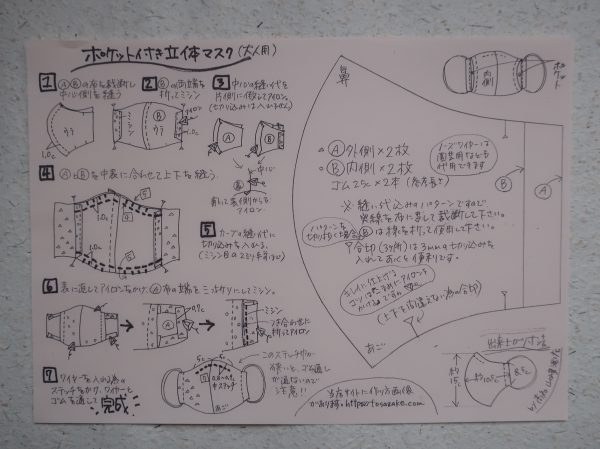 ポケット付き立体マスク(大人用)
1 ⒶⒷの布を裁断し
中心側を縫う
ウラ
1.0c
2 Ⓑの両端を
折ってミシン
ミシン
Ⓑ
ウラ
3 中心の縫い代を
片側に倒してアイロン。
(切り込みは入れない)
Ⓐ
Ⓐ
中心
アイロン
4 ⒶとⒷを中表に合わせて上下を縫う。
1.0c
5 カーブの縫い代に
切り込みを入れる。
6 表に返してアイロンをかけ、Ⓐ布の左端を三つ折りにしてミシン。
Ⓐ
ミシン
つき合わせに
折ってアイロン
7 ワイヤーを入れる為の
ステッチをかけ、ワイヤーと
ゴムを通して
完成
あご
このステッチが
長いと、ゴム通し
が通らないので
注意!!
鼻
Ⓐ外側×2枚
Ⓑ内側×2枚
ゴム25c×2本
ノーズワイヤーは
園芸用などでも
代用できます
※ 縫い代込みのパターンですので
実線を布に写して裁断して下さい。
Ⓑは線を折って使用して下さい。
合印(3ヶ所)は3mmの切り込みを
入れておくと便利です。
(上下を間違えない為の合印)
キレイに仕上げる
コツはこまめにアイロンを
かける事です。
あご
Ⓑ
Ⓐ
内側
ポケット
出来上がり寸法
約10c
8.5c
当店サイトに作り方画像
があります。https://tosazake.com